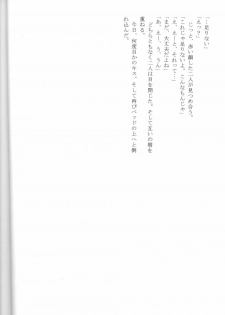 「…足りない」
「えっ？」
　じっと、赤い顔した二人が見つめ合う。
「これじゃ足りないよ、こんなもんじゃ」
「え、えーと、それって…」
「まだ、大丈夫だよね」
「あ、えー、うん」
　どちらともなく二人は目を閉じた。そして互いの唇を
重ねる。
　今日、何度目かのキス。そして再びベッドの上へと倒
れ込んだ。